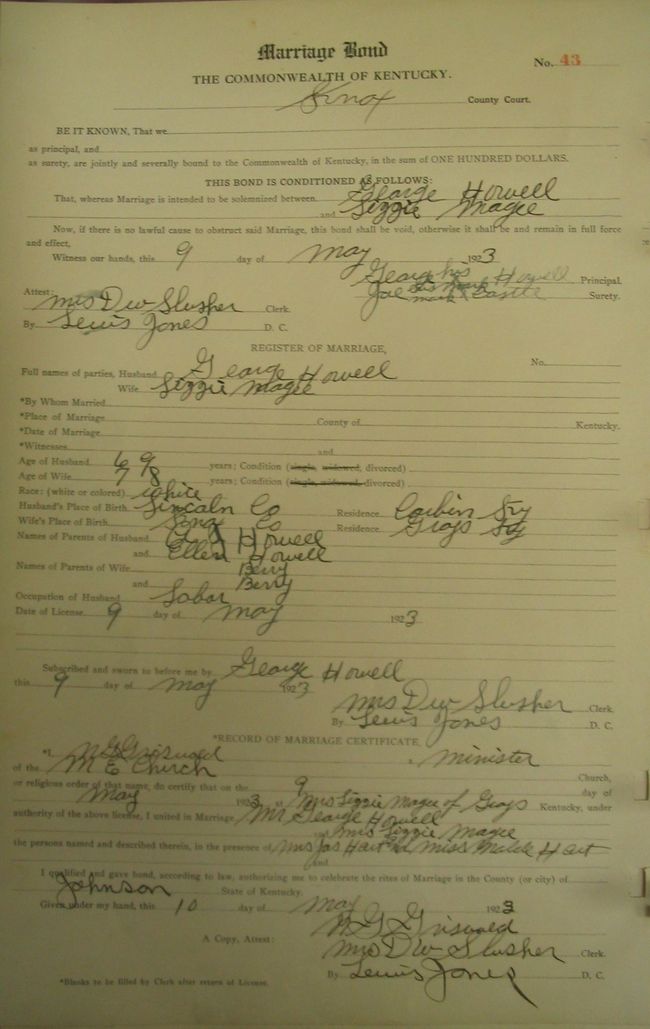 Marriage Bond
No. 43
THE COMMONWEALTH OF KENTUCKY.
Knox County Court.
BE IT KNOWN, That we
as principal, and
as surety, are jointly and severally bound to the Commonwealth of Kentucky, in the sum of ONE HUNDRED DOLLARS.
THIS BOND IS CONDITIONED AS FOLLOWS:
That, whereas Marriage is intended to be solemnized between George Howell
and Lizzie Magee
Now, if there is no lawful cause to obstruct said Marriage, this bond shall be void, otherwise it shall be and remain in full force
and effect,
Witness our hands, this 9 day of May 1923
George his Howell Principal.
Attest: Joe his mark Surety.
Mrs D W Slusher Clerk.
By Lewis Jones D. C.
REGISTER OF MARRIAGE,
No.
Full names of parties, Husband George Howell
Wife Lizzie Magee
*By Whom Married
*Place of Marriage County of Kentucky.
*Date of Marriage
*Witnesses and
Age of Husband 69 years; Condition (single, widowed, divorced)
Age of Wife 48 years; Condition (single, widowed, divorced)
Race: (white or colored) white
Husband's Place of Birth Lincoln Co Residence Corbin Ky
Wife's Place of Birth Knox Co Residence Grays Ky
Names of Parents of Husband Howell
and Ellen Howell
Names of Parents of Wife Berry
and Berry
Occupation of Husband Labor
Date of License 9 day of May 1923
Subscribed and sworn to before me by George Howell
this 9 day of May 1923
Mrs D W Slusher Clerk.
By Lewis Jones D. C.
*RECORD OF MARRIAGE CERTIFICATE.
*I, N G Griswold a minister
of the M E Church Church,
or religious order of that name, do certify that on the 9 day of
May 1923 at Mrs Lizzie Magee of Grays Kentucky, under
authority of the above license, I united in Marriage Mr George Howell
and Mrs Lizzie Magee
the persons named and described therein, in the presence of Mrs Jas Hart and Miss Hart
and
I qualified and gave bond, according to law, authorizing me to celebrate the rites of Marriage in the County (or city) of
Johnson State of Kentucky.
Given under my hand, this 10 day of May 1923
N G Griswold
A Copy, Attest: Mrs D W Slusher Clerk.
By Lewis Jones D. C.
*Blanks to be filled by Clerk after return of License.